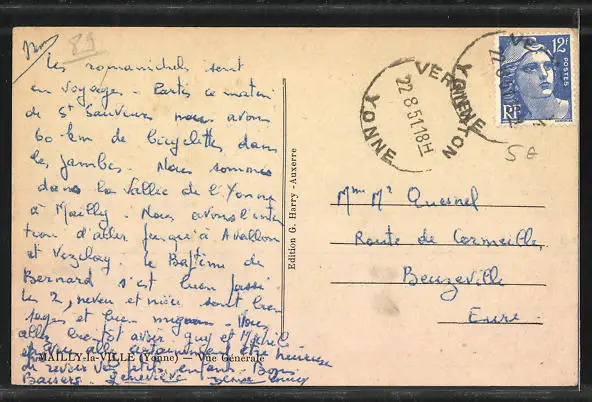 89
Les romanichels sont
en voyage. Partis ce matin
de St Sauveur nous avons
60 km de bicyclette dans
les jambes. Nous sommes
dans la Vallée de l'Yonne
à Mailly. Nous avons l'inten
tion d'aller jusqu'à Avallon
et Vezelay. Le Baptême de
Bernard s'est bien passé.
Les 2, neveu et nièce sont bien
sages et bien mignons. Vous
allez bientôt avoir Guy et
et être heureuse
de revoir vos petits enfants. Bons
Baisers. Geneviève
MAILLY-la-VILLE (Yonne) — Vue Générale
Edition G. Harry - Auxerre
VERMENTON
YONNE
22.8.51.18H
12F
POSTES
RF
5 €
Mme Mr Quesnel
Route de Cormeilles
Beuzeville
Eure.